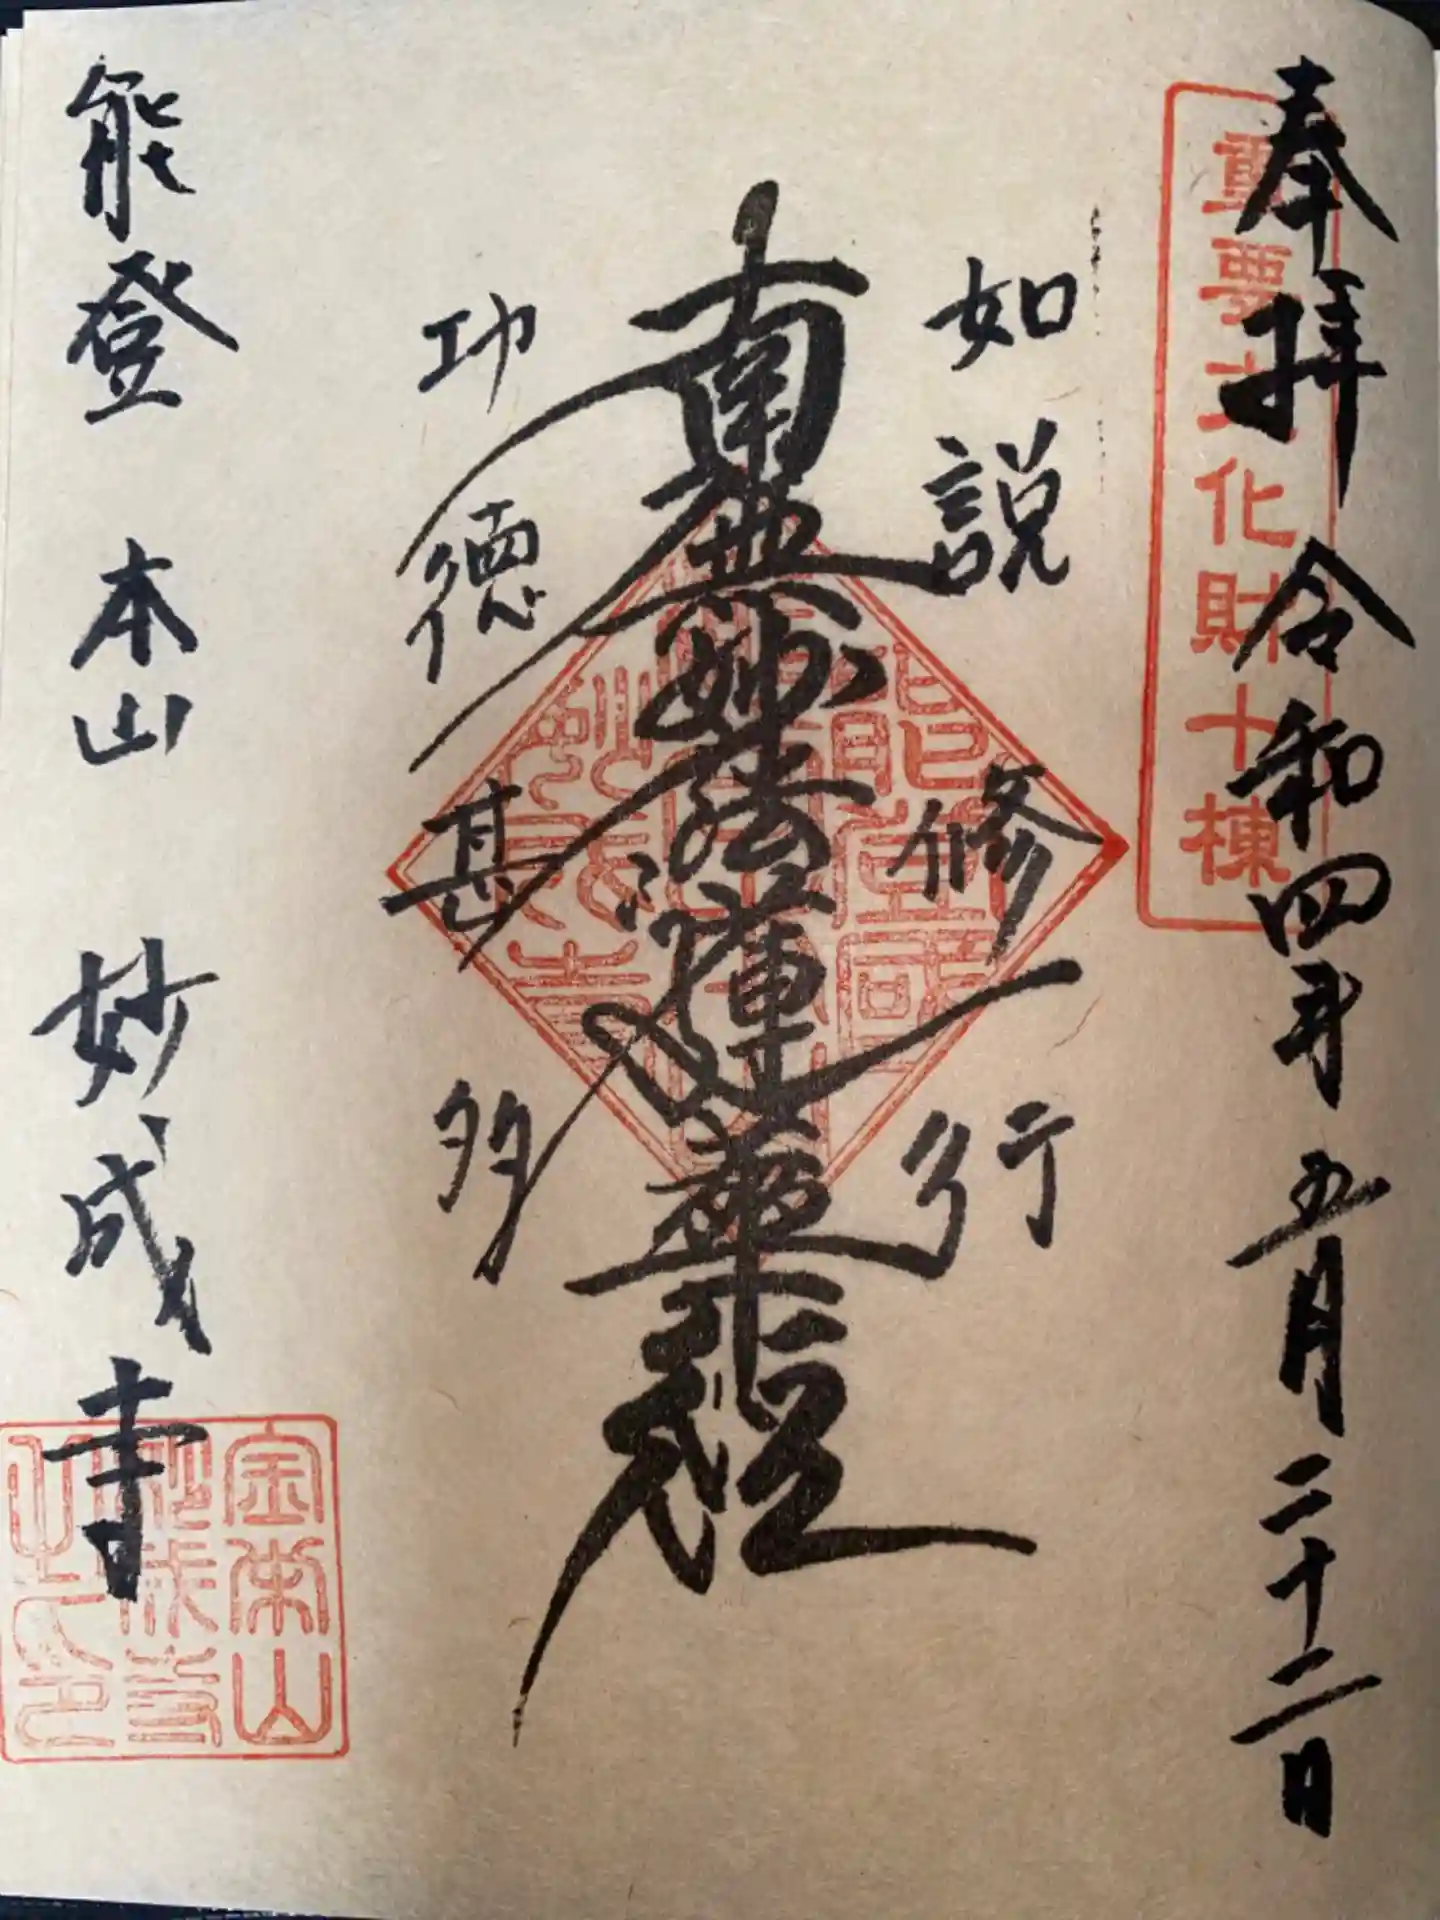 奉拝 令和四年五月二十二日
重要文化財十棟
如説修行
南無妙法蓮華経
功徳甚多
能登 本山 妙成寺
金栄山妙成寺之印